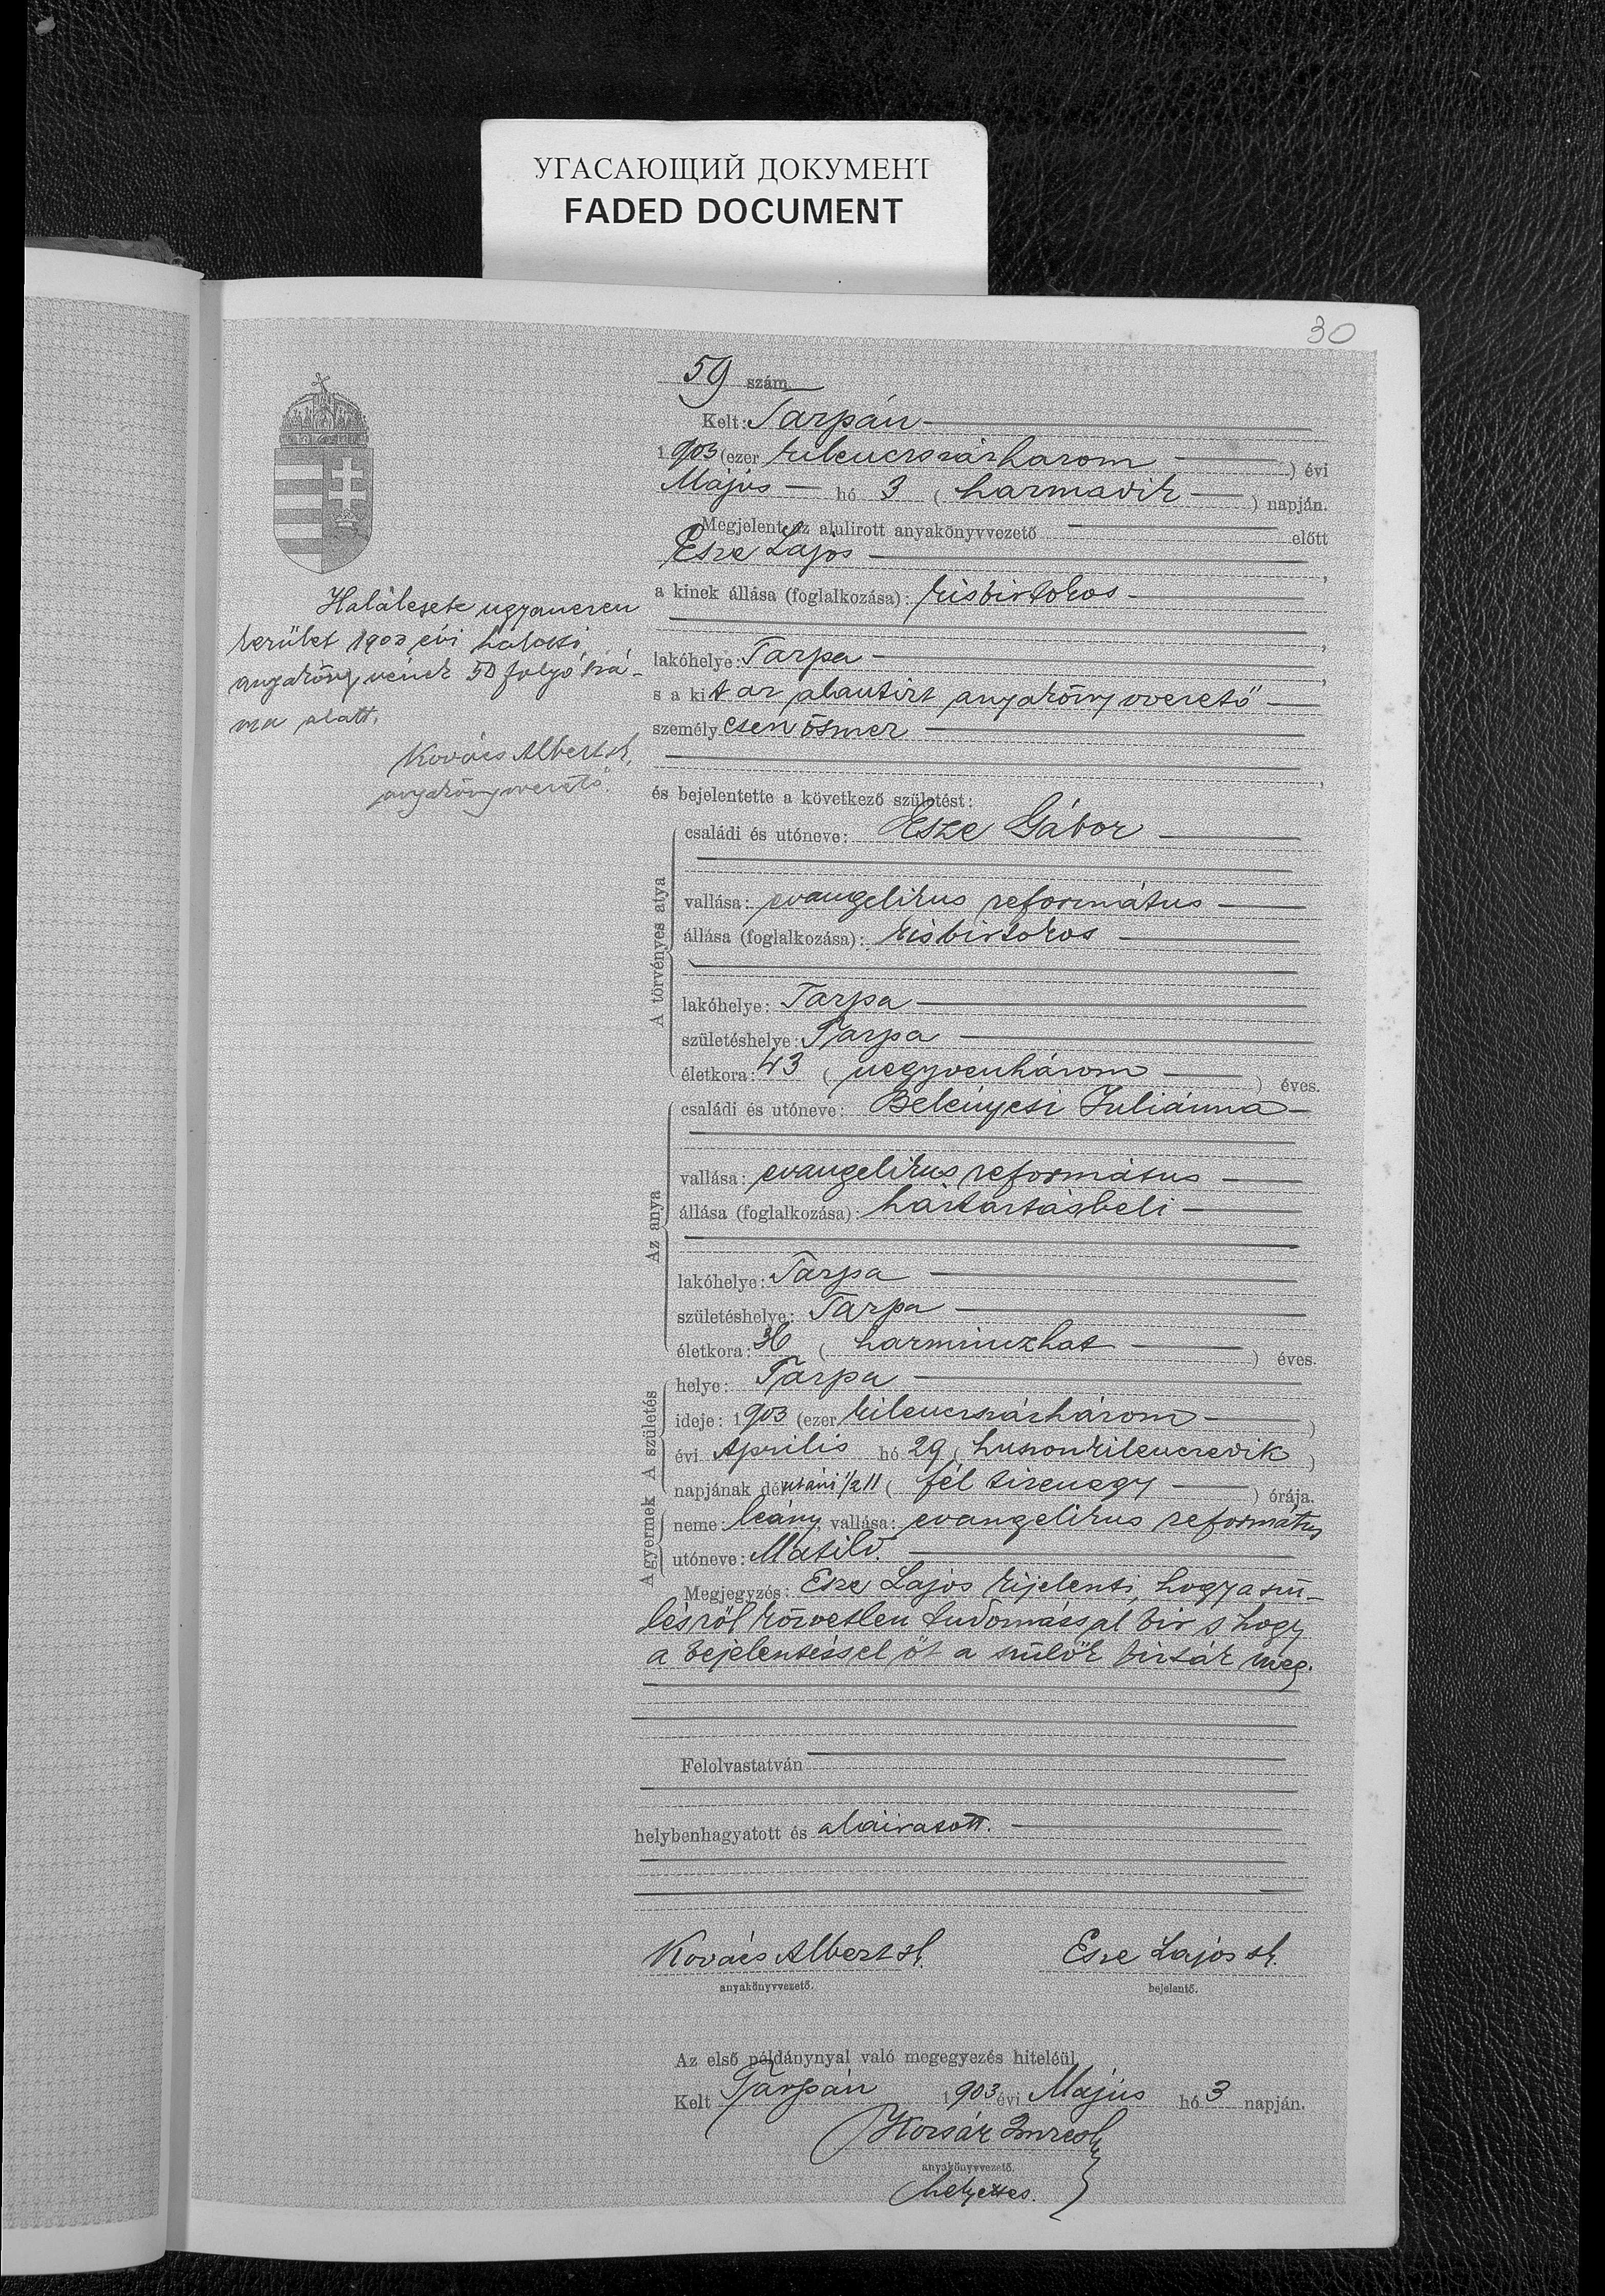 УГАСАЮЩИЙ ДОКУМЕНТ
FADED DOCUMENT
30
59 szám
Kelt: Tarpán
1903 (ezer kilenczszázharom ) évi
Május hó 3 ( harmadik ) napján.
Megjelent az alulirott anyakönyvvezető előtt
Esze Lajos ,
a kinek állása (foglalkozása): kisbirtokos
,
lakóhelye: Tarpa ,
s a kit az alantirt anyakönyvvezető
személyesen ösmer
,
és bejelentette a következő születést:
Halálesete ugyanezen
kerület 1903 évi halotti
anyakönyvének 50 folyó szá-
ma alatt.
Kovács Albert sk.
anyakönyvvezető.
A törvényes atya
családi és utóneve: Esze Gábor
vallása: evangelikus református
állása (foglalkozása): kisbirtokos
lakóhelye: Tarpa
születéshelye: Tarpa
életkora: 43 ( negyvenhárom ) éves.
Az anya
családi és utóneve: Belényesi Juliánna
vallása: evangelikus református
állása (foglalkozása): háztartásbeli
lakóhelye: Tarpa
születéshelye: Tarpa
életkora: 36 ( harminczhat ) éves.
A születés
helye: Tarpa
ideje: 1903 (ezer kilenczszázhárom )
évi Április hó 29 ( huszonkilenczedik )
napjának délutáni 1/2 11 ( fél tizenegy ) órája.
A gyermek
neme: leány, vallása: evangelikus református
utóneve: Matild.
Megjegyzés: Esze Lajos kijelenti, hogy a szü-
lésről közvetlen tudomással bir s hogy
a bejelentéssel őt a szülők bizták meg.
Felolvastatván
helybenhagyatott és aláiratott.
Kovács Albert sk. Esze Lajos sk.
anyakönyvvezető. bejelentő.
Az első példánynyal való megegyezés hiteléül
Kelt Tarpán 1903 évi Május hó 3 napján.
Imre sk
anyakönyvvezető.
helyettes.